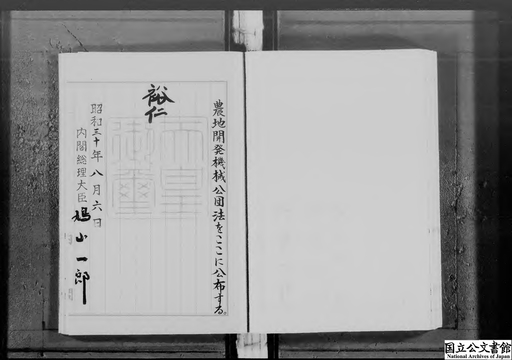 農地開発機械公団法をここに公布する。
裕仁
天皇
御璽
昭和三十年八月六日
内閣総理大臣 鳩山一郎
国立公文書館
National Archives of Japan